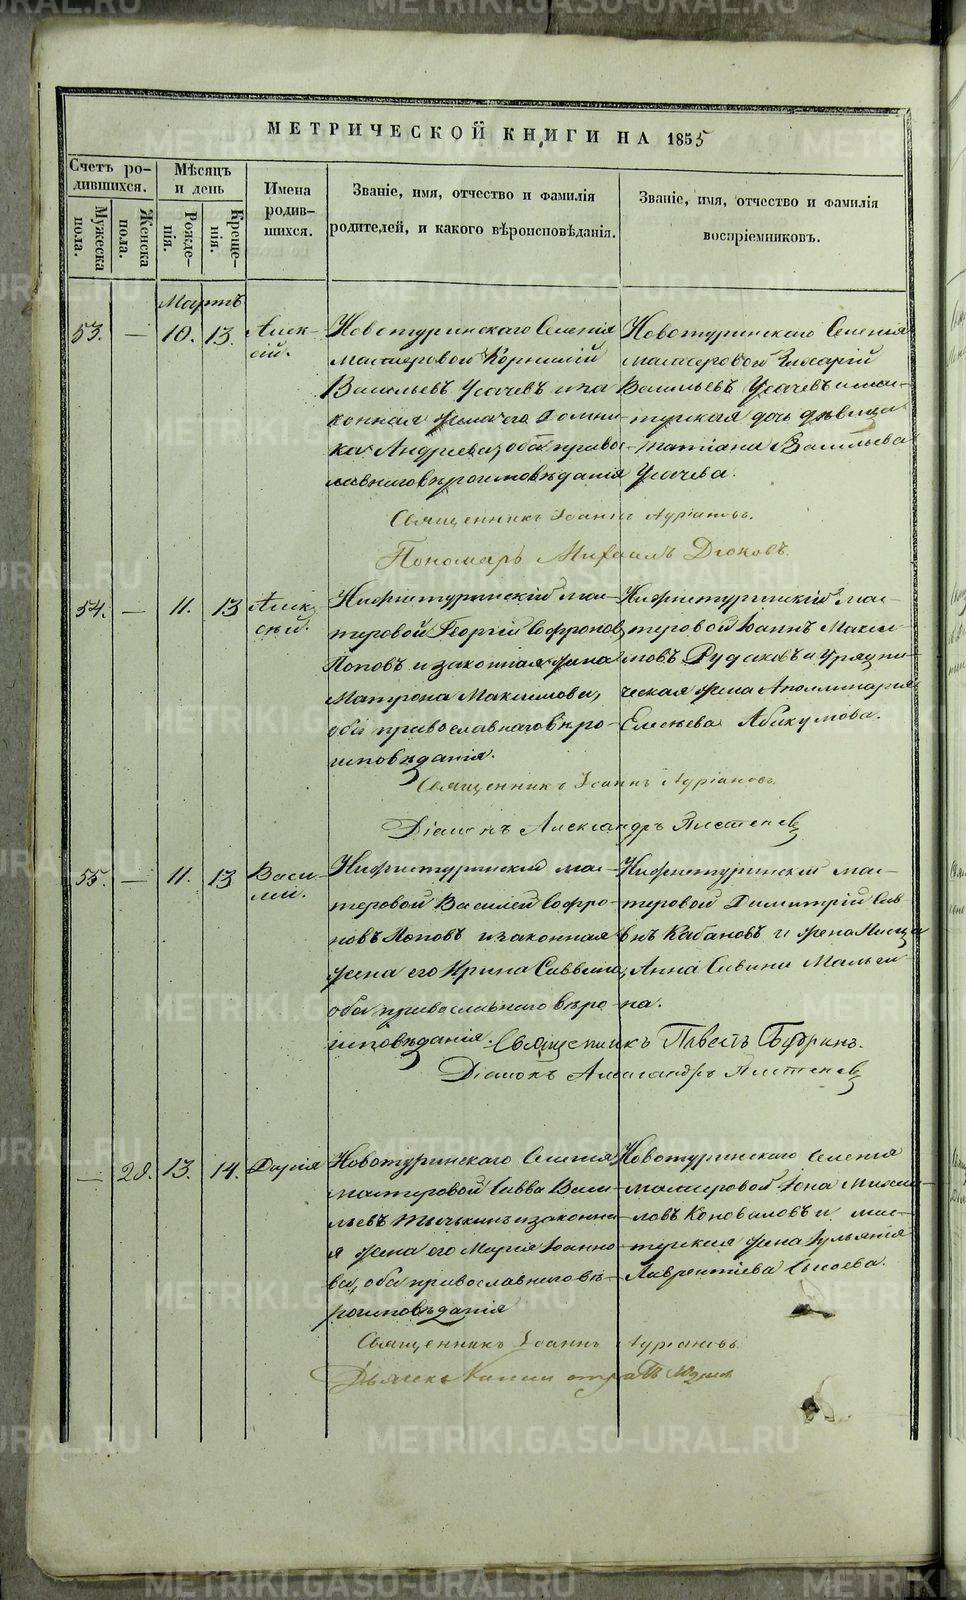 МЕТРИЧЕСКОЙ КНИГИ НА 1855
Счетъ ро-
дившихся.
Мужеска
пола.
Женска
пола.
Мѣсяцъ
и день
Рожде-
нія.
Креще-
нія.
Имена
родив-
шихся.
Званіе, имя, отчество и фамилія
родителей, и какого вѣроисповѣданія.
Званіе, имя, отчество и фамилія
воспріемниковъ.
Мартъ
53. — 10. 13. Алек-
сій.
Новотуринскаго Селенія
мастеровой Корнилій
Васильевъ Усачевъ и за
конная жена его Домни-
ка Андреева, оба право-
славнаго вѣроисповѣданія
Новотуринскаго Селенія
мастеровой
Васильевъ Усачевъ и мас-
терская дочь дѣвица
Татіана Васильева
Усачева.
Священникъ Іоаннъ Адріановъ.
Пономарь Михаилъ
54. — 11. 13 Алек-
сѣй.
Нижнетуринскій мас-
теровой Георгій Софроновъ
Поповъ и законная жена
Матрона Максимова,
оба православнаго вѣро-
исповѣданія.
Нижнетуринскій мас-
теровой Іоаннъ Макси-
мовъ Рудаковъ и уряд­ни-
ческая жена Аполлинарія
Елисѣева Абакумова.
Священникъ Іоаннъ Адріановъ.
Діаконъ Александръ Плетеневъ
55. — 11. 13 Васи-
лій.
Нижнетуринскій мас-
теровой Василей Софро-
новъ Поповъ и законная
жена его Ирина Саввина,
оба православнаго вѣро-
исповѣданія.
Нижнетуринскій мас-
теровой Димитрій Сав-
внъ Кабановъ и жена
Анна Савина
на.
Священникъ Бабринъ.
Діаконъ Александръ Плетеневъ
— 28. 13. 14. Дарія
Новотуринскаго Селенія
мастеровой Савва Васи-
льевъ Тычькинъ и законна-
я жена его Марія Іоанно-
ва, оба православнаго вѣ-
роисповѣданія
Новотуринскаго Селенія
мастеровой Іона Михаи-
ловъ Коноваловъ и мас-
терская жена Іуліанія
Лаврентіева Сысоева.
Священникъ Іоаннъ Адріановъ.